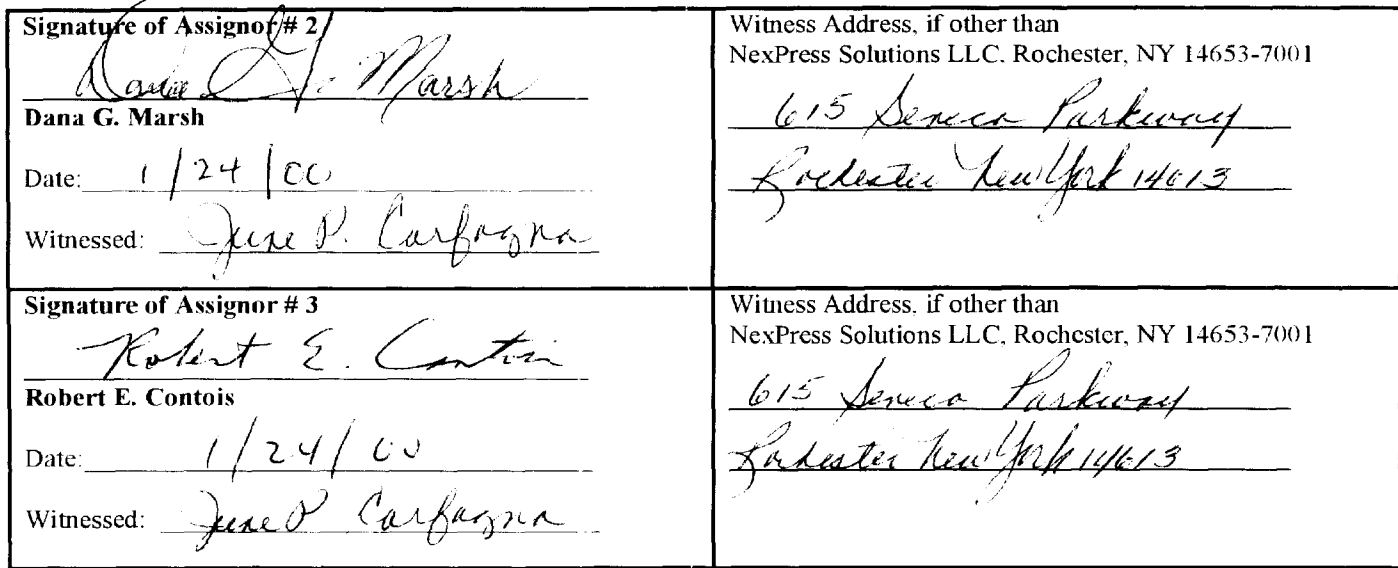 Signature of Assignor # 2
Dana G. Marsh
Dana G. Marsh
Date: 1/24/00
Witnessed: June P. Carfagna
Witness Address, if other than
NexPress Solutions LLC. Rochester, NY 14653-7001
615 Seneca Parkway
Rochester New York 14613
Signature of Assignor # 3
Robert E. Contois
Robert E. Contois
Date: 1/24/00
Witnessed: June P Carfagna
Witness Address, if other than
NexPress Solutions LLC, Rochester, NY 14653-7001
615 Seneca Parkway
Rochester New York 14613